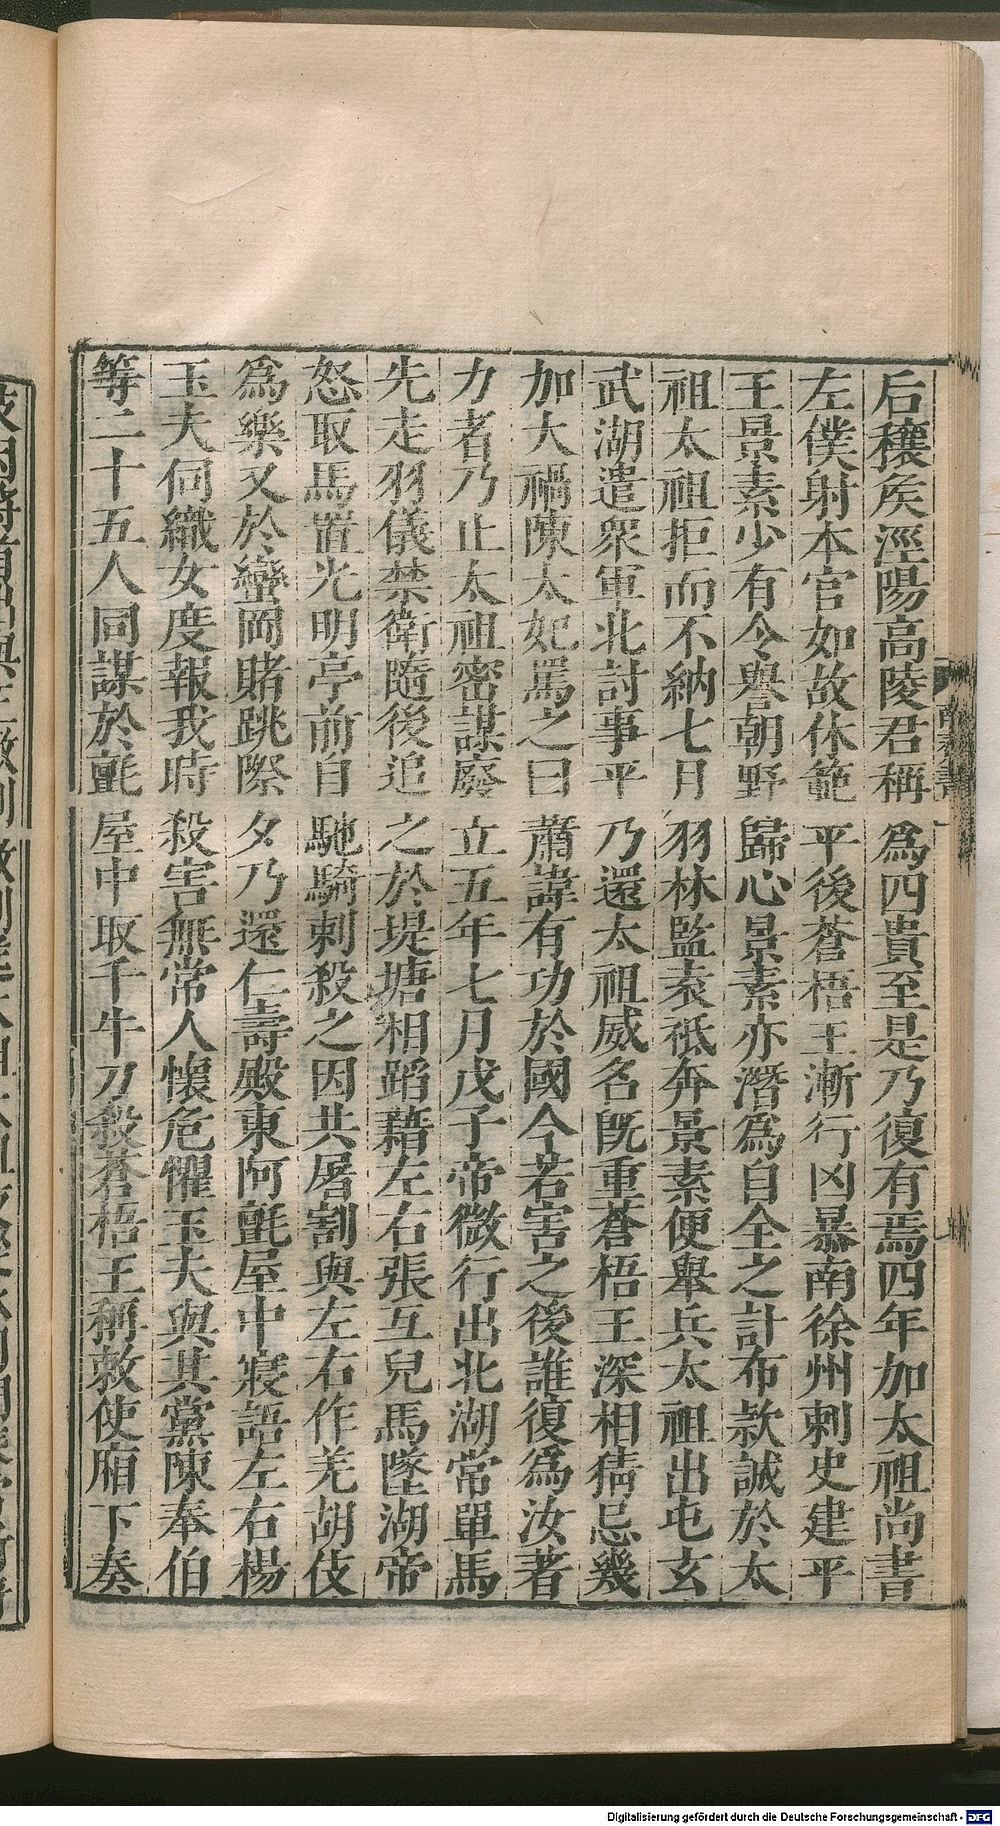 后穰矦涇陽高陵君稱爲四貴至是乃復有焉四年加太祖尚書
左僕射本官如故休範平後蒼梧王漸行凶暴南徐州刺史建平
王景素少有令譽朝野歸心景素亦潛爲自全之計布款誠於太
祖太祖拒而不納七月羽林監袁祗奔景素便舉兵太祖出屯玄
武湖遣眾軍北討事平乃還太祖威名既重蒼梧王深相猜忌幾
加大禍陳太妃罵之曰蕭諱有功於國今若害之後誰復爲汝著
力者乃止太祖密謀廢立五年七月戊子帝微行出北湖常單馬
先走羽儀禁衛隨後追之於堤塘相蹈藉左右張互兒馬墜湖帝
怒取馬置光明亭前自馳騎剌殺之因共屠割與左右作羌胡伎
爲樂又於蠻岡賭跳際夕乃還仁壽殿東阿氈屋中寢語左右楊
玉夫伺織女度報我時殺害無常人懷危懼玉夫與其黨陳奉伯
等二十五人同謀於氈屋中取千牛刀殺蒼梧王稱敕使廂下奏
Digitalisierung gefördert durch die Deutsche Forschungsgemeinschaft - DFG